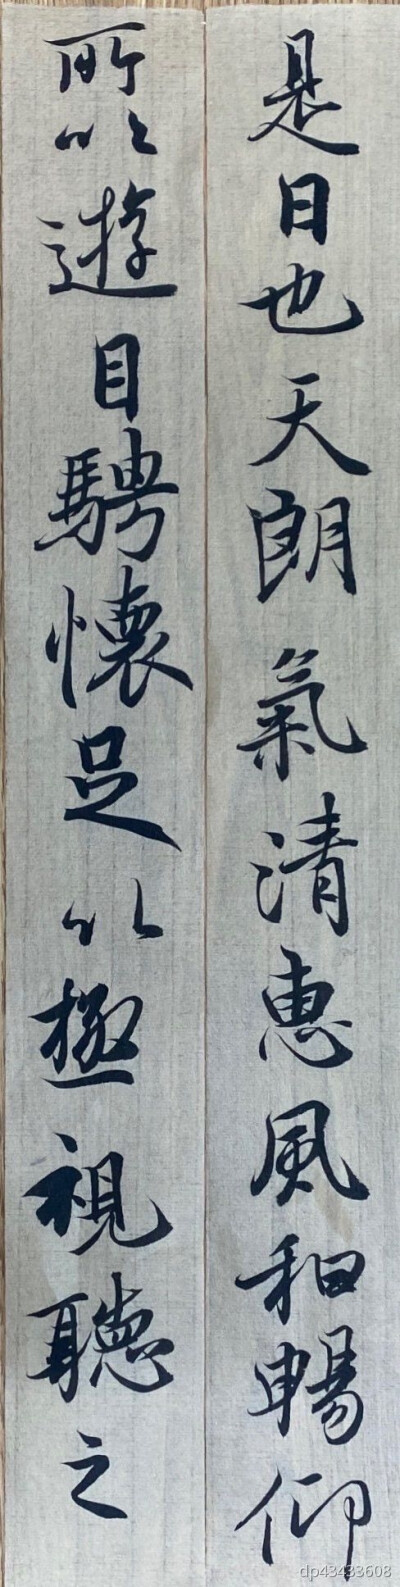 是日也天朗氣清惠風和暢仰
所以遊目騁懷足以極視聽之
dp43433608